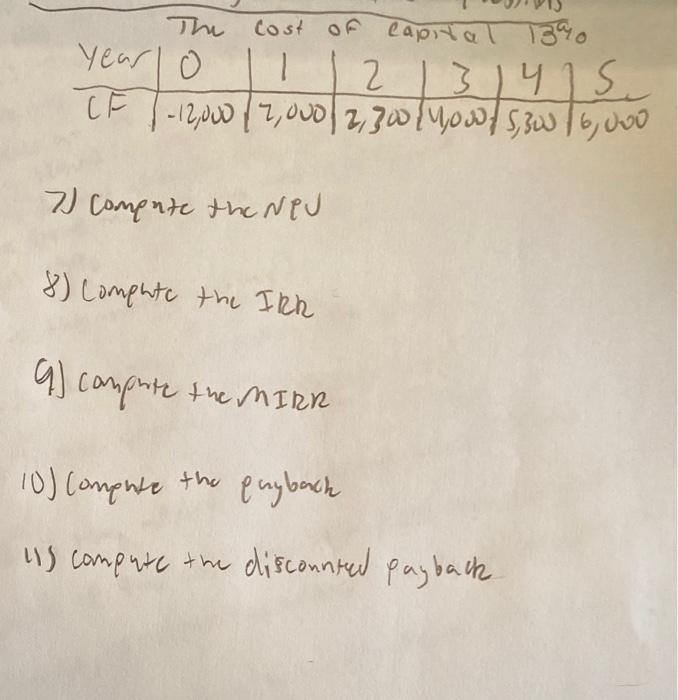 The Cost of Capital 13%
Year 0 1 2 3 4 5
CF -12,000 2,000 2,300 4,000 5,300 6,000
7) Compute the NPV
8) Compute the IRR
9) Compute the MIRR
10) Compute the payback
11) compute the discounted payback